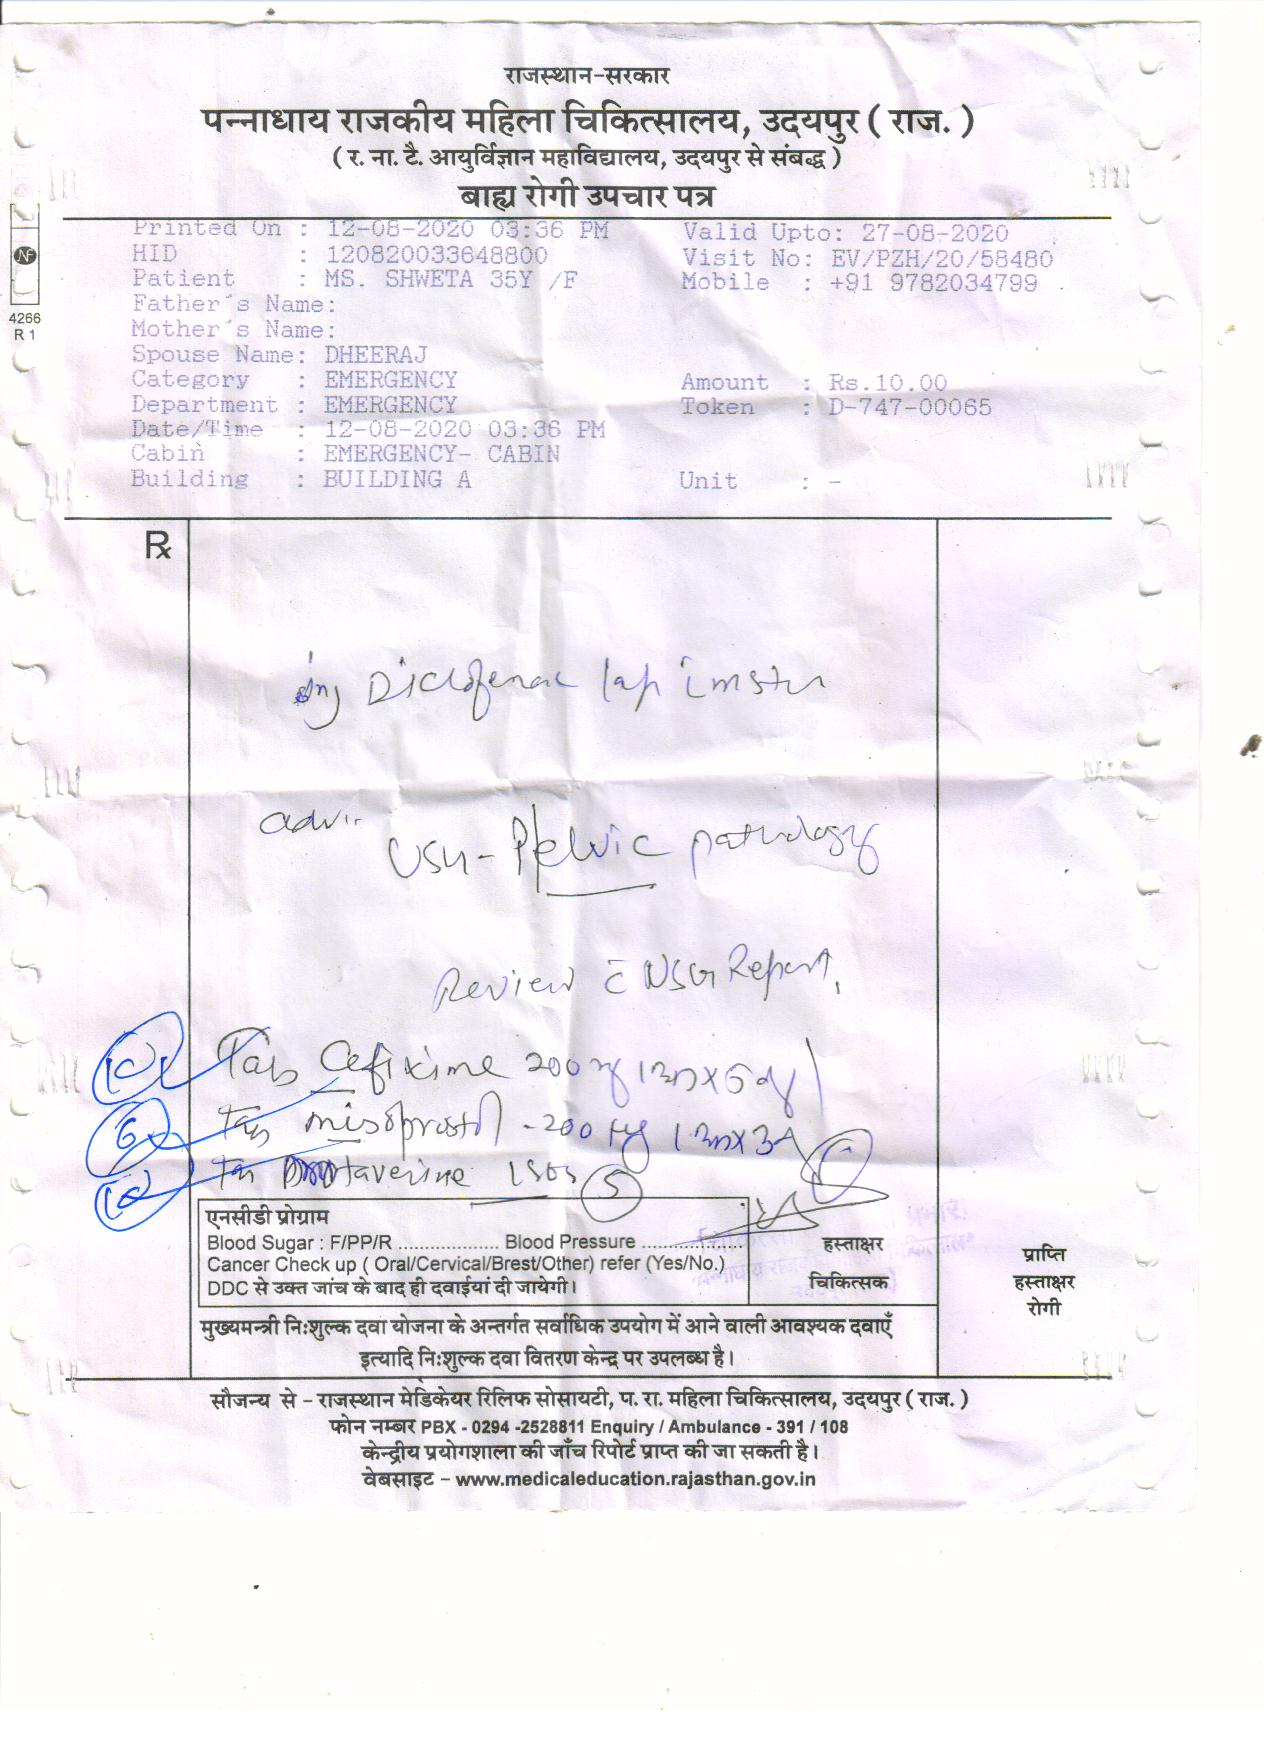 राजस्थान-सरकार
पन्नाधाय राजकीय महिला चिकित्सालय, उदयपुर ( राज. )
( र. ना. टै. आयुर्विज्ञान महाविद्यालय, उदयपुर से संबद्ध )
बाह्य रोगी उपचार पत्र
Printed On : 12-08-2020 03:36 PM Valid Upto: 27-08-2020
HID : 120820033648800 Visit No: EV/PZH/20/58480
Patient : MS. SHWETA 35Y /F Mobile : +91 9782034799
Father's Name:
4266
R 1
Mother's Name:
Spouse Name: DHEERAJ
Category : EMERGENCY Amount : Rs.10.00
Department : EMERGENCY Token : D-747-00065
Date/Time : 12-08-2020 03:36 PM
Cabin : EMERGENCY- CABIN
Building : BUILDING A Unit : -
Rx
inj Diclofenac 1ap
advi.
USG - Pelvic pathology
Review c̄ USG Report.
Tab Cefixime 200 mg
Tab misoprostol - 200
Tab Drotaverine 1 SOS 5
एनसीडी प्रोग्राम
Blood Sugar : F/PP/R .................. Blood Pressure ..................
Cancer Check up ( Oral/Cervical/Brest/Other) refer (Yes/No.)
DDC से उक्त जांच के बाद ही दवाईयां दी जायेगी।
हस्ताक्षर
चिकित्सक
प्राप्ति
हस्ताक्षर
रोगी
मुख्यमन्त्री निःशुल्क दवा योजना के अन्तर्गत सर्वाधिक उपयोग में आने वाली आवश्यक दवाएँ
इत्यादि निःशुल्क दवा वितरण केन्द्र पर उपलब्ध है।
सौजन्य से – राजस्थान मेडिकेयर रिलिफ सोसायटी, प. रा. महिला चिकित्सालय, उदयपुर ( राज. )
फोन नम्बर PBX - 0294 -2528811 Enquiry / Ambulance - 391 / 108
केन्द्रीय प्रयोगशाला की जाँच रिपोर्ट प्राप्त की जा सकती है।
वेबसाइट – www.medicaleducation.rajasthan.gov.in